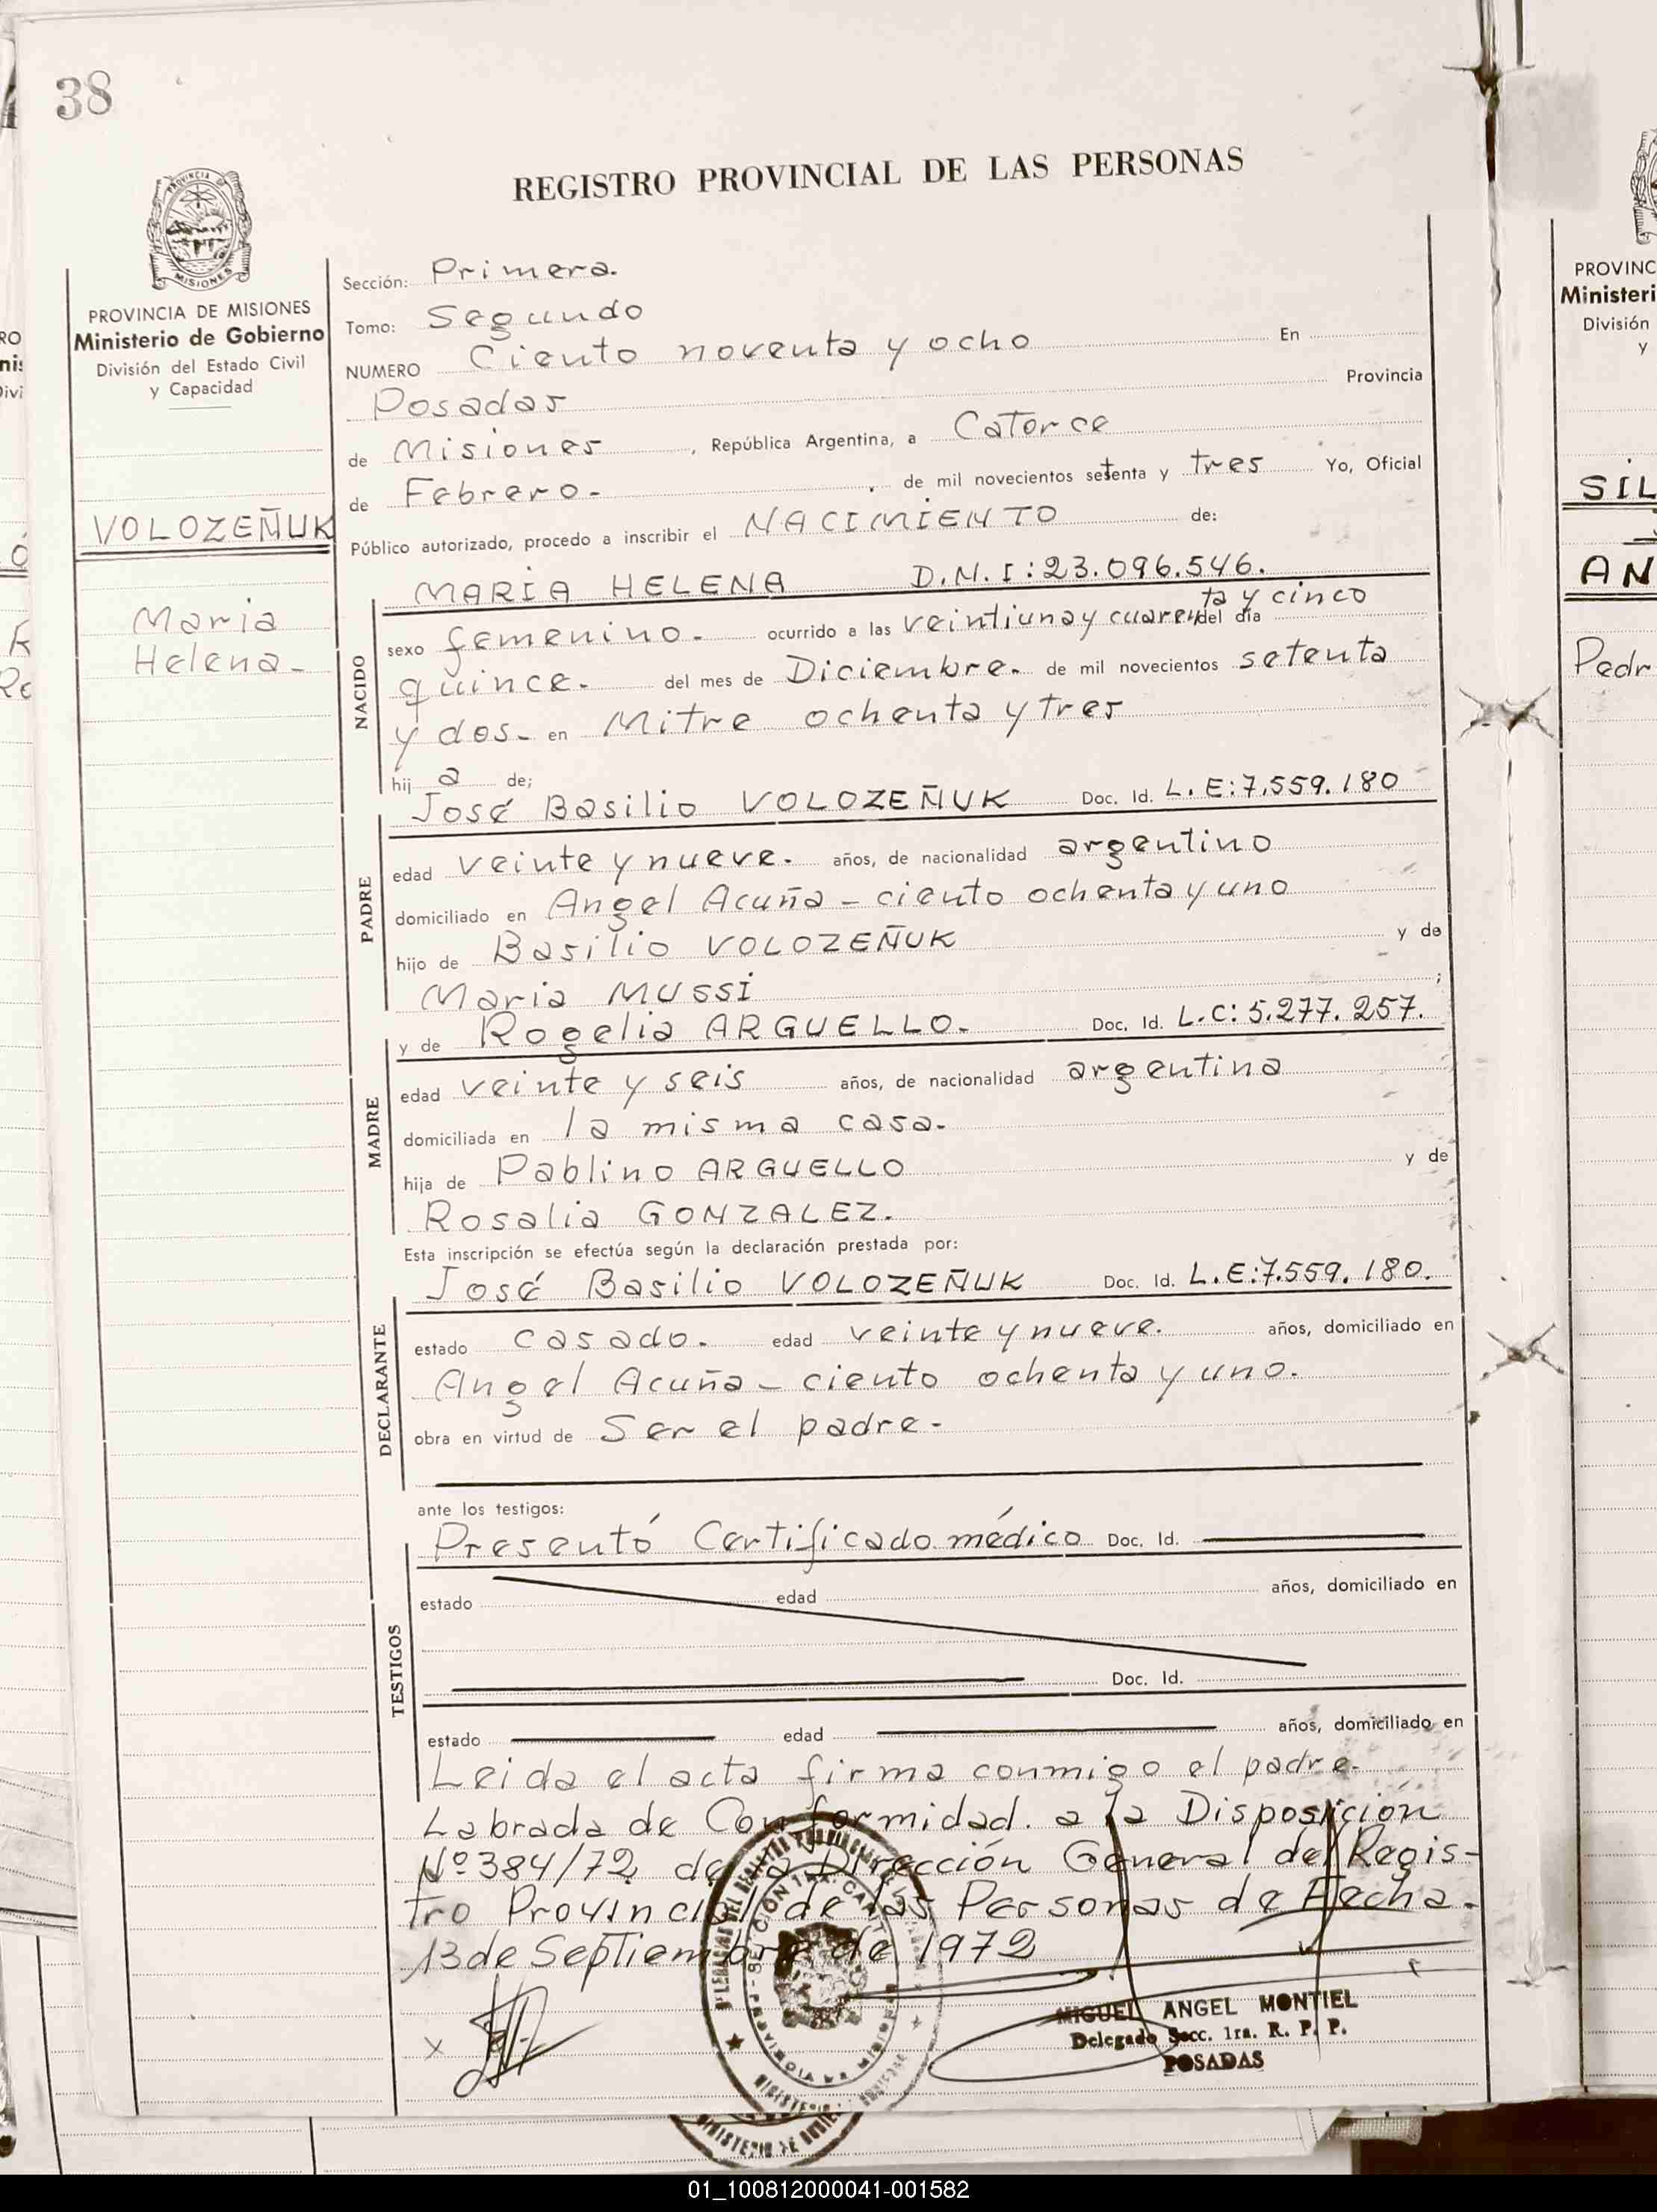 38
REGISTRO PROVINCIAL DE LAS PERSONAS
PROVINCIA
MISIONES
PROVINCIA DE MISIONES
Ministerio de Gobierno
División del Estado Civil
y Capacidad
VOLOZEÑUK
Maria
Helena-
Sección: Primera.
Tomo: Segundo
NUMERO Ciento noventa y ocho En
Posadas Provincia
de Misiones, República Argentina, a Catorce
de Febrero.- de mil novecientos setenta y tres Yo, Oficial
Público autorizado, procedo a inscribir el NACIMIENTO de:
MARIA HELENA D.N.I:23.096.546.
NACIDO
ta y cinco
sexo femenino.- ocurrido a las veintiuna y cuaren del día
quince.- del mes de Diciembre. de mil novecientos setenta
y dos- en Mitre ochenta y tres
hij a de;
PADRE
José Basilio VOLOZEÑUK Doc. Id. L.E:7.559.180
edad veinte y nueve. años, de nacionalidad argentino
domiciliado en Angel Acuña - ciento ochenta y uno
hijo de Basilio VOLOZEÑUK y de
Maria MUSSI ;
MADRE
y de Rogelia ARGUELLO. Doc. Id. L.C:5.277.257.
edad veinte y seis años, de nacionalidad argentina
domiciliada en la misma casa.
hija de Pablino ARGUELLO y de
Rosalia GONZALEZ.
Esta inscripción se efectúa según la declaración prestada por:
DECLARANTE
José Basilio VOLOZEÑUK Doc. Id. L.E:7.559.180.
estado casado. edad veinte y nueve. años, domiciliado en
Angel Acuña - ciento ochenta y uno.
obra en virtud de Ser el padre-
ante los testigos:
TESTIGOS
Presentó Certificado médico Doc. Id.
estado edad años, domiciliado en
Doc. Id.
estado edad años, domiciliado en
Leida el acta firma conmigo el padre.
Labrada de Conformidad. a la Disposición
Nº384/72 de la Dirección General del Regis-
tro Provincial de las Personas de Fecha.
13 de Septiembre de 1972
x
MIGUEL ANGEL MONTIEL
Delegado Secc. 1ra. R. P. P.
POSADAS
PROVINC
Ministeri
División
y
SIL
AN
Pedr
01_100812000041-001582